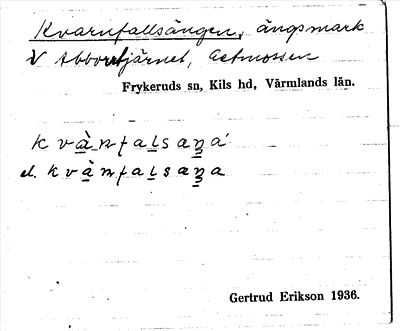 Kvarnfallsängen, ängsmark
V Abborrtjärnet, Aetmossen
Frykeruds sn, Kils hd, Värmlands län.
kvànfalsaŋa
el. kvàmfalsaŋa
Gertrud Erikson 1936.